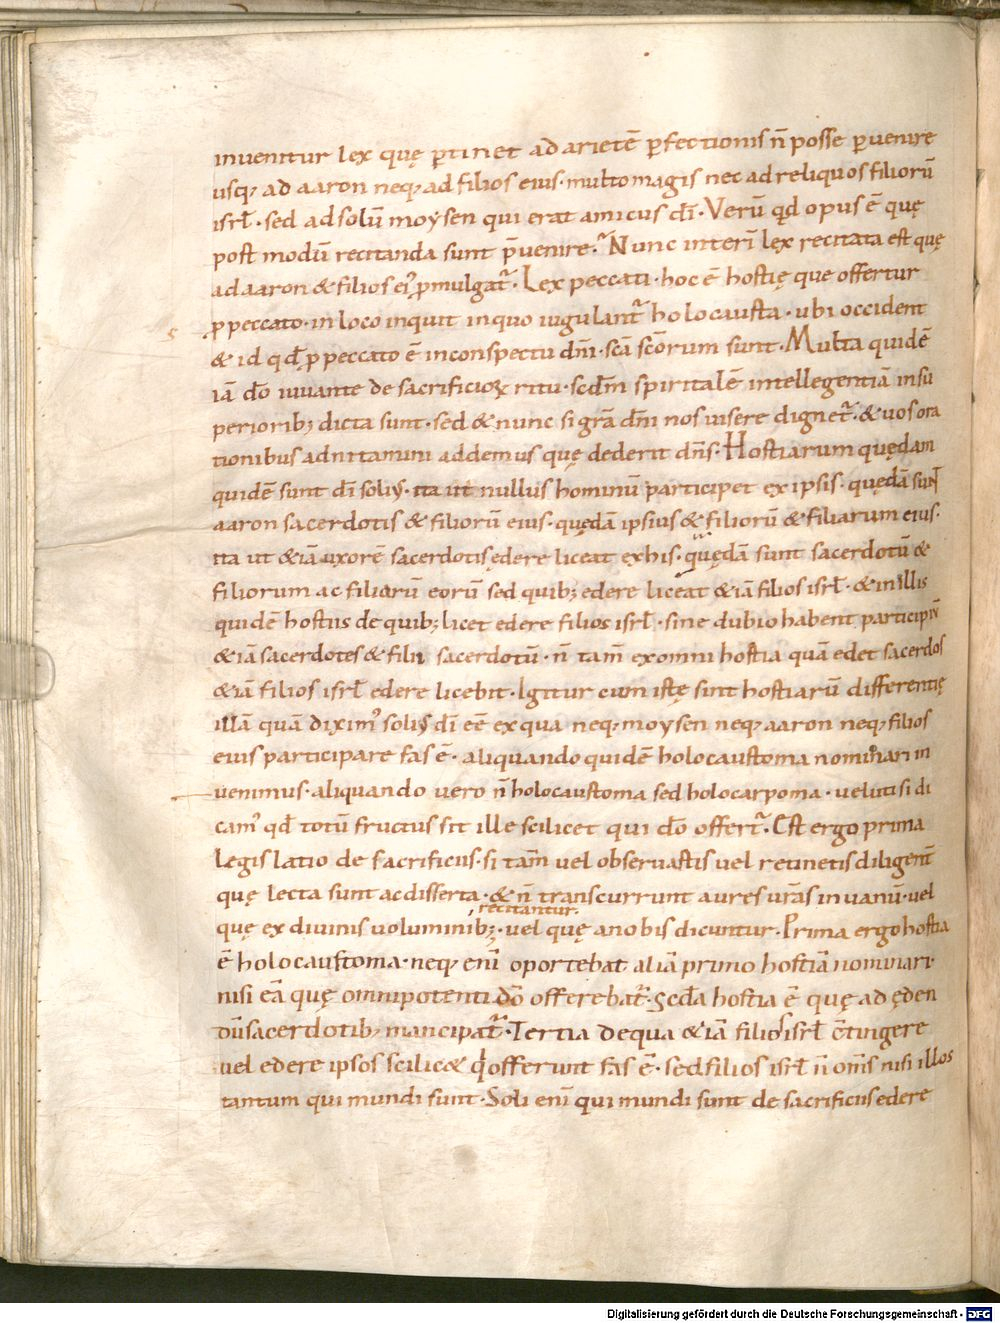 inuenitur lex quę ꝑtinet ad arietē ꝑfectionis n̄ posse ꝑuenire
usq; ad aaron neq; ad filios eius· multo magis nec ad reliquos filiorū
isrl̄· sed ad solū moysen qui erat amicus dī· Verū qd̄ opus ē quę
post modū recitanda sunt p̄uenire· Nunc interī lex recitata est quę
ad aaron & filios ei' ꝓmulgat᷑· Lex peccati· hoc ē hostię que offertur
ꝓ peccato· in loco inquit in quo iugulant᷑ holocausta· ubi occident
& id qd̄ ꝓ peccato ē in conspectu dn̄i· sc̄a sc̄orum sunt· Multa quidē
iā dō iuuante de sacrificioꝝ ritu· scdm̄ spiritalē intellegentiā in su
perioribꝫ dicta sunt· sed & nunc si gr̄a dn̄i nos uisere dignet᷑· & uos ora
tionibus adnitamini addemus quę dederit dn̄s· Hostiarum quędam
quidē sunt dī solis· ita ut nullus hominū participet ex ipsis· quędā sunt
aaron sacerdotis & filiorū eius· quędā ipsius & filiorū & filiarum eius·
ita ut &iā uxorē sacerdotis edere liceat ex his· quędā sunt sacerdotū &
filiorum ac filiarū eorū sed quibꝫ edere liceat &iā filios isrl̄· & in illis
quidē hostiis de quibꝫ licet edere filios isrl̄· sine dubio habent participiū
&iā sacerdotes & filii sacerdotū· n̄ tam̄ ex omni hostia quā edet sacerdos
&iā filios isrl̄ edere licebit· Igitur cum istę sint hostiarū differentię
illā quā dixim' solis dī eē ex qua neq; moysen neq; aaron neq; filios
eius participare fas ē· aliquando quidē holocaustoma nominari in
uenimus· aliquando uero n̄ holocaustoma sed holocarpoma· uelut si di
cam' qd̄ totū fructus sit ille scilicet qui dō offert᷑· Est ergo prima
legislatio de sacrificiis· si tam̄ uel obseruastis uel retinetis diligent̄
quę lecta sunt ac disserta· & n̄ transcurrunt aures ur̄as in uanū· uel
recitantur·
quę ex diuinis uoluminibꝫ· uel quę a nobis dicuntur· Prima ergo hostia
ē holocaustoma· neq; enī oportebat aliā primo hostiā nominari·
nisi eā quę omnipotenti dō offerebat᷑· Scd̄a hostia ē quę ad ęden
dū sacerdotibꝫ mancipat᷑· Tertia de qua &iā filios isrl̄ c̄tingere
uel edere ipsos scilic& qi offerunt fas ē· sed filios isrl̄ n̄ om̄s nisi illos
tantum qui mundi sunt· Soli enī qui mundi sunt de sacrificiis edere
Digitalisierung gefördert durch die Deutsche Forschungsgemeinschaft - DFG